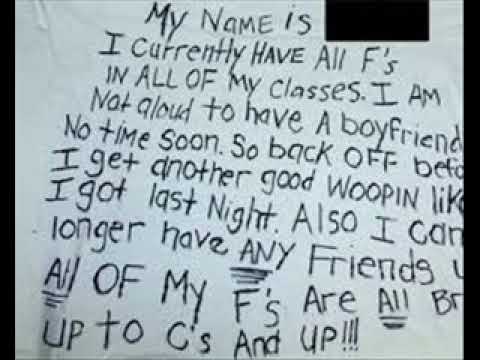 My NAME is
I Currently HAVE All F's
IN ALL OF My Classes. I AM
Not aloud to have A boyfriend
No time soon. So back OFF befo
I get another good WOOPIN lik
I got last Night. Also I can
longer have ANY Friends u
All OF My F's Are All Br
UP to C's And UP!!!